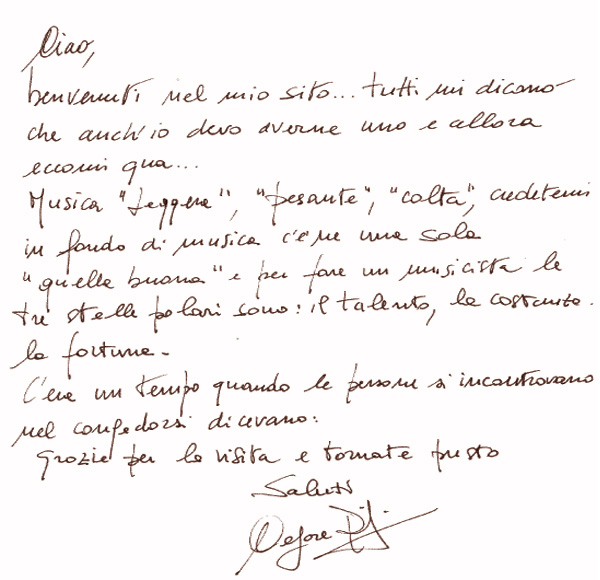 Ciao,
benvenuti nel mio sito... tutti mi dicono
che anch'io devo averne uno e allora
eccomi qua...
Musica "leggera", "pesante", "colta", credetemi
in fondo di musica c'è ne una sola
"quella buona" e per fare un musicista le
tre stelle polari sono: il talento, la costanza.
la fortuna.
C'era un tempo quando le persone si incontravano
nel congedarsi dicevano:
Grazie per la visita e tornate presto
Saluti